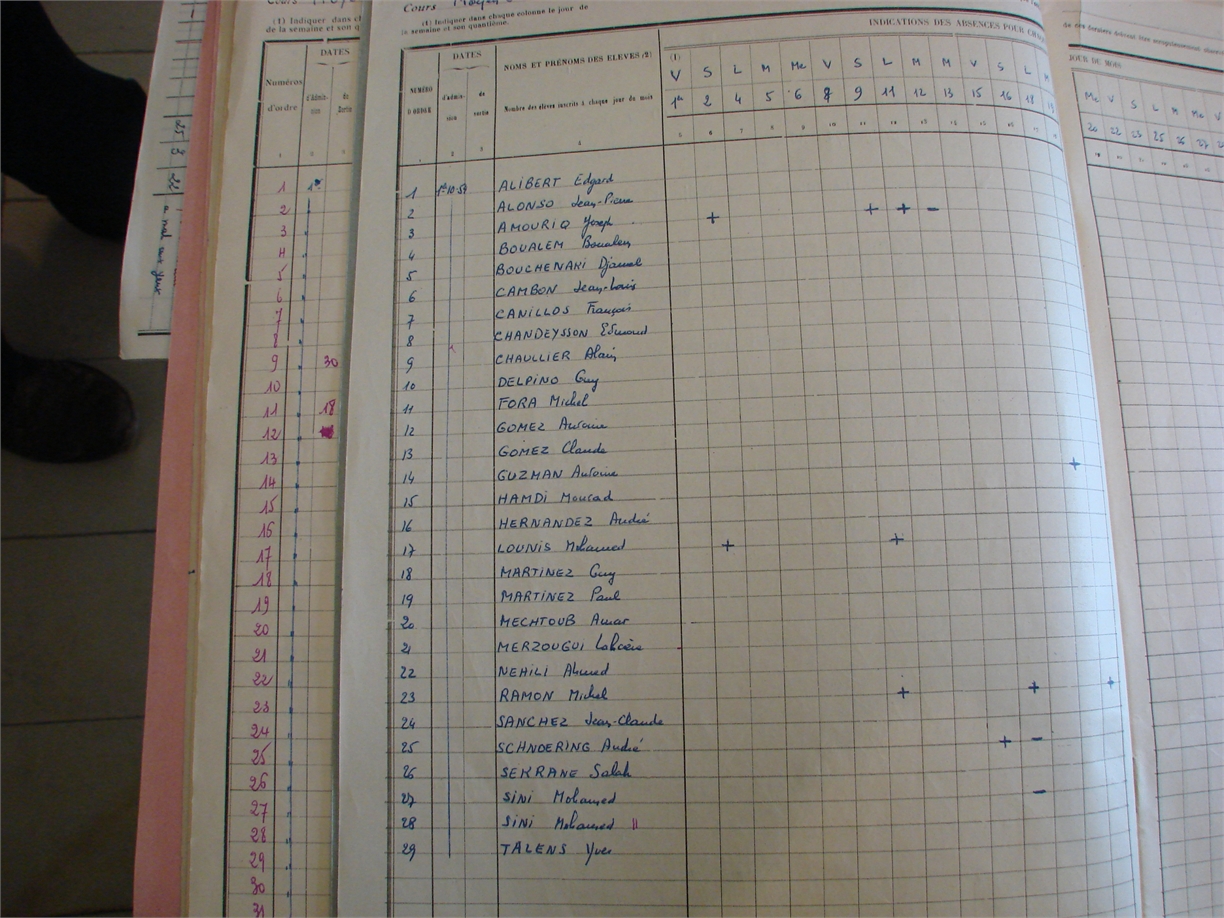 (1) Indiquer dans ch
de la semaine et son q
DATES
Numéros
d'ordre
1
2
3
4
5
6
7
8
9 30
10
11 18
12
13
14
15
16
17
18
19
20
21
22
23
24
25
26
27
28
29
30
31
a mal aux yeux
Cours Moyen
(1) Indiquer dans chaque colonne le jour de
la semaine et son quantième.
INDICATIONS DES ABSENCES POUR CHAQ
DATES
NOMS ET PRÉNOMS DES ELEVES (2)
NUMÉRO D'ORDRE
d'admis-sion
de sortie
Nombre des élèves inscrits à chaque jour du mois
(1)
V S L M Me V S L M M V S L M
1er 2 4 5 6 8 9 11 12 13 15 16 18 19
1 ALIBERT Edgard
2 ALONSO Jean-Pierre
3 AMOURIQ Joseph + + + -
4 BOUALEM Boualem
5 BOUCHENAKI Djamel
6 CAMBON Jean-Louis
7 CANILLOS François
8 CHANDEYSSON Edmond
9 CHAULLIER Alain
10 DELPINO Guy
11 FORA Michel
12 GOMEZ Antoine
13 GOMEZ Claude
14 GUZMAN Antoine +
15 HAMDI Mourad
16 HERNANDEZ André
17 LOUNIS Mohamed + +
18 MARTINEZ Guy
19 MARTINEZ Paul
20 MECHTOUB Amar
21 MERZOUGUI
22 NEHILI Ahmed
23 RAMON Michel + + +
24 SANCHEZ Jean-Claude
25 SCHNDERING André + -
26 SEKRANE Salah
27 SINI Mohamed -
28 SINI Mohamed II
29 TALENS Yves
JOUR DU MOIS
Me V S L M Me V
20 22 23 25 26 27